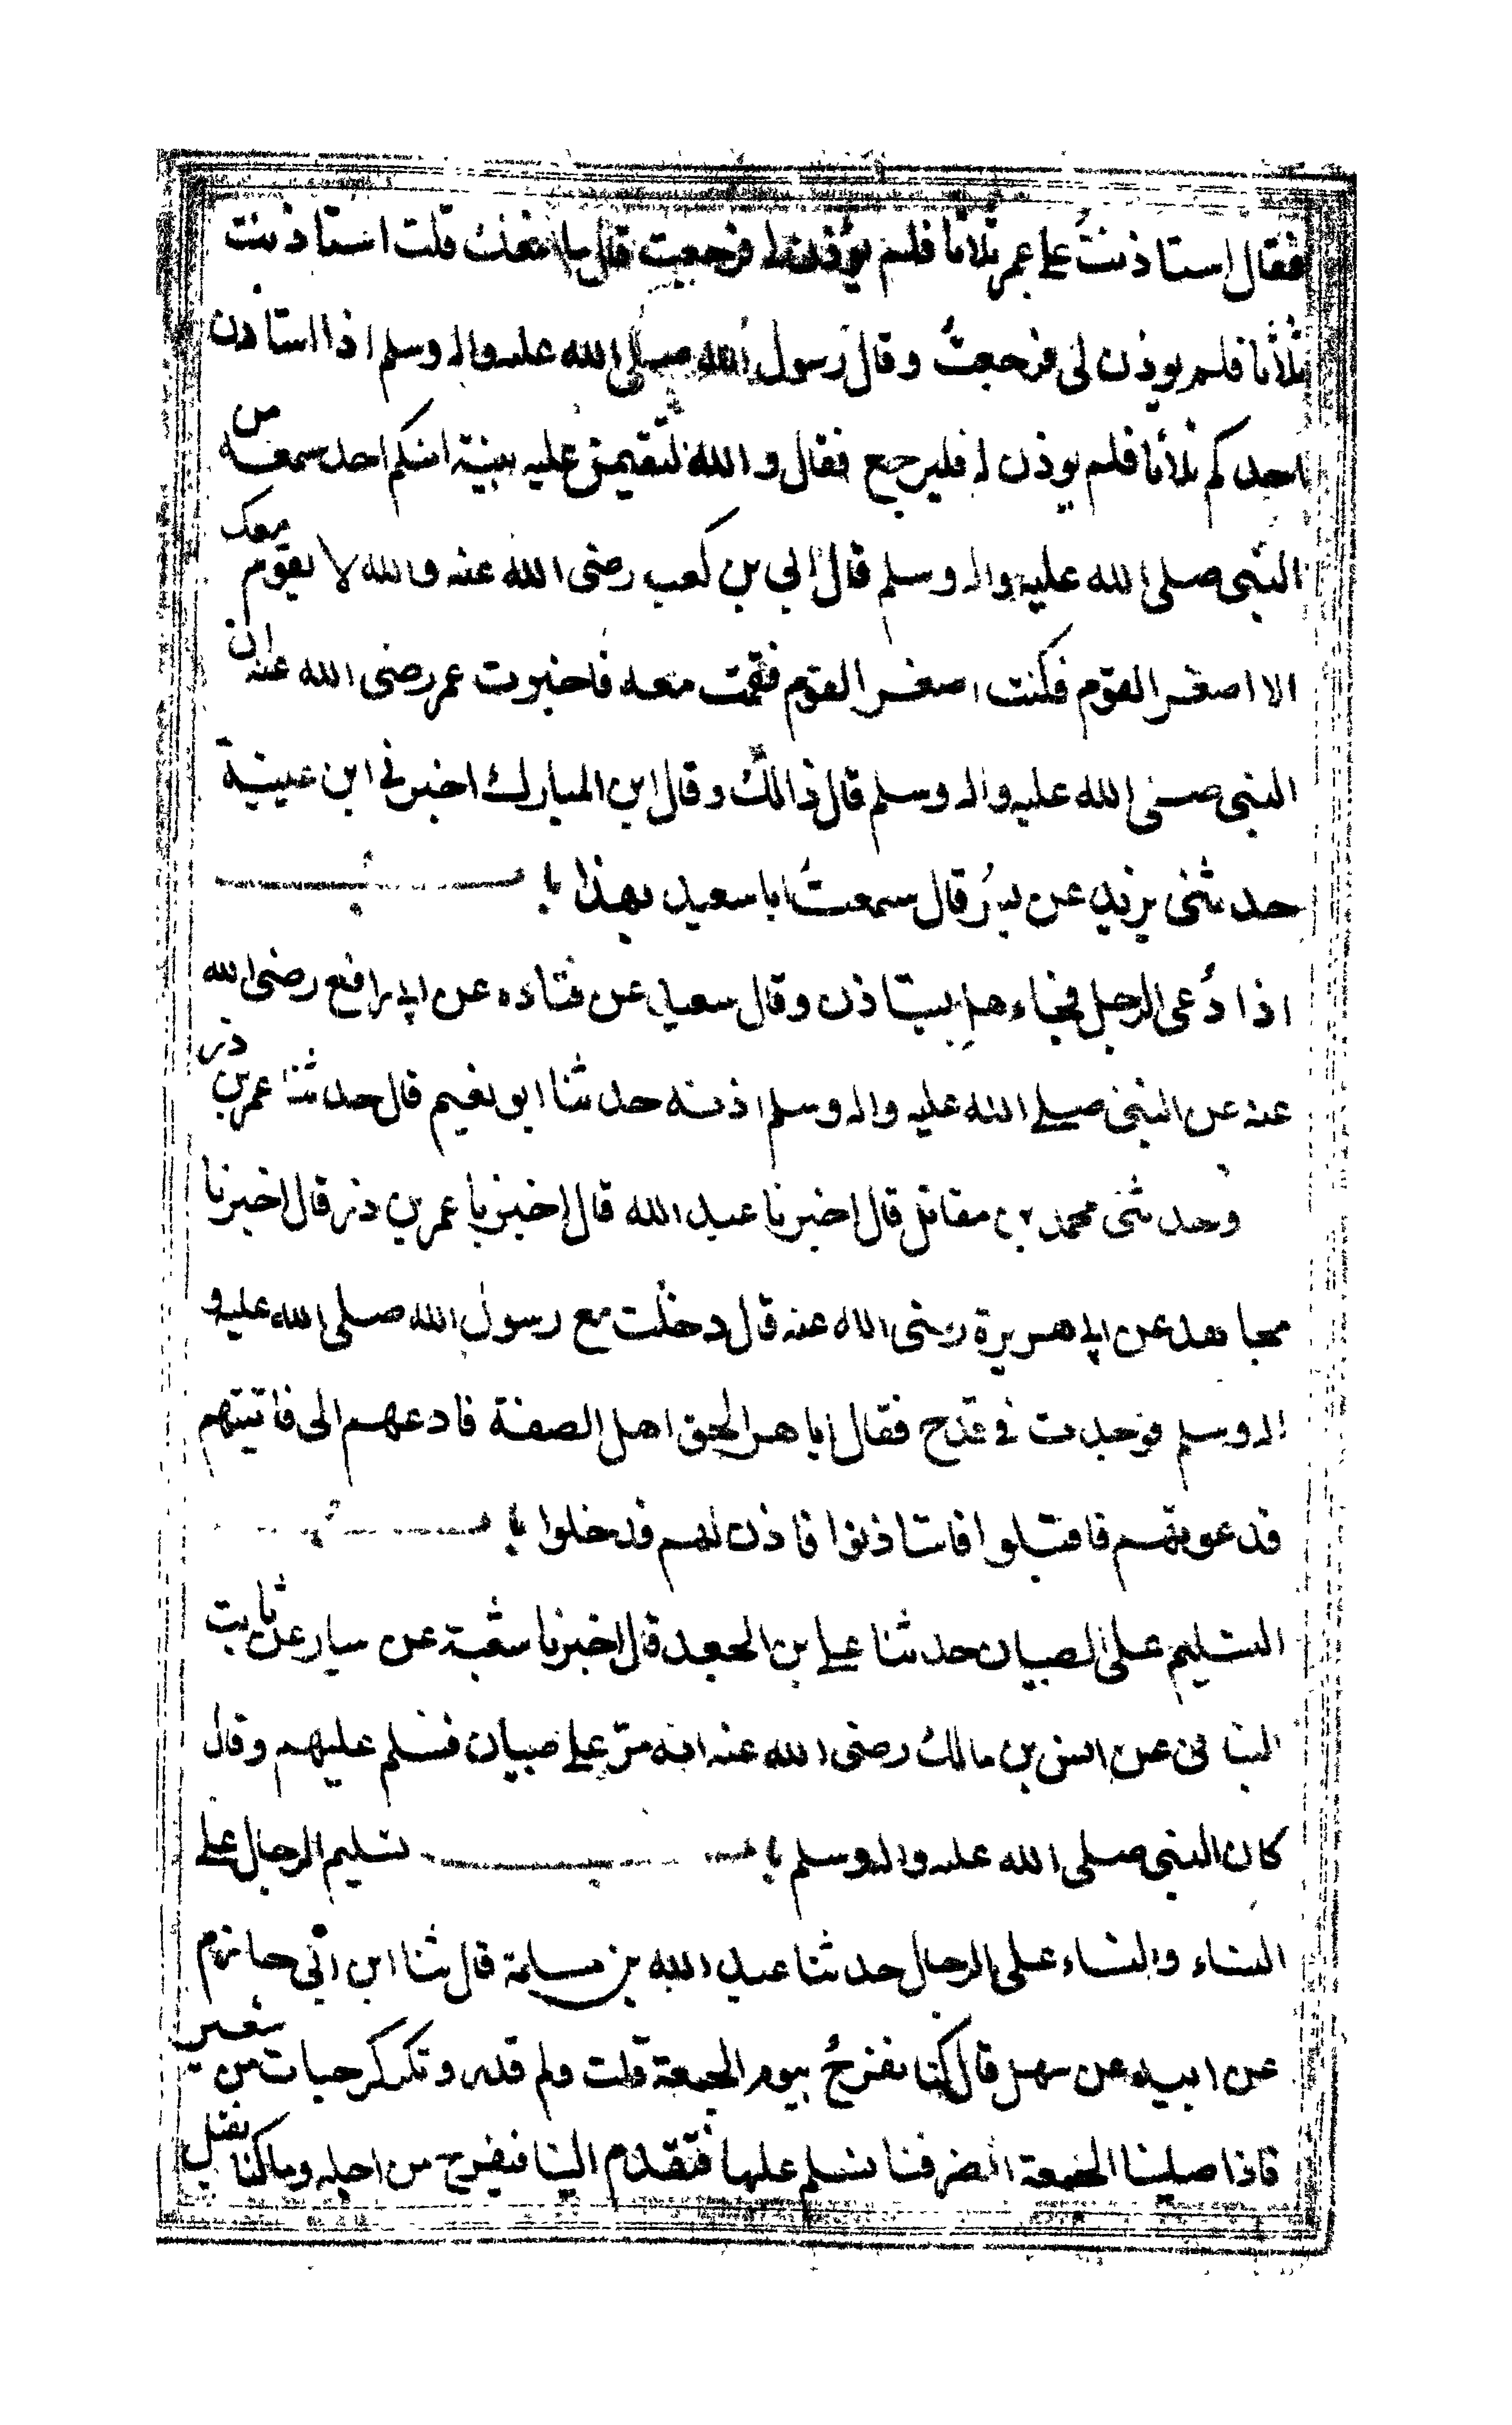 فقال استاذنتُ على عمر ثلاثا فلم يؤذن لى فرجعت قال ما منعك قلت استاذنت
ثلاثا فلم يوذن لى فرجعتُ وقال رسول الله صلى الله عليه واله وسلم اذا استاذن
احدكم ثلاثا فلم يوذن له فليرجع فقال والله لتقيمن عليه بينة امنكم احد سمعه من
النبى صلى الله عليه واله وسلم قال ابي بن كعب رضى الله عنه والله لا يقوم معك
الا اصغر القوم فكنت اصغر القوم فقمت معه فاخبرت عمر رضى الله عنه ان
النبى صلى الله عليه واله وسلم قال ذالك وقال ابن المبارك اخبرنى ابن عيينة
حدثنى يزيد عن بسر قال سمعتُ ابا سعيد بهذا باب
اذا دُعى الرجل فجاء هل يستاذن وقال سعيد عن قتاده عن ابى رافع رضى الله
عنه عن النبى صلى الله عليه واله وسلم اذنه حدثنا ابو نعيم قال حدثنا عمر بن ذر
وحدثنى محمد بن مقاتل قال اخبرنا عبد الله قال اخبرنا عمر بن ذر قال اخبرنا
مجاهد عن ابى هريرة رضى الله عنه قال دخلت مع رسول الله صلى الله عليه و
اله وسلم فوجدت فى قدح فقال ابا هر الحق اهل الصفة فادعهم الى فاتيتهم
فدعوتهم فاقبلوا فاستاذنوا فاذن لهم فدخلوا باب
التسليم على الصبيان حدثنا على بن الجعد قال اخبرنا شعبة عن سيار عن ثابت
البنانى عن انس بن مالك رضى الله عنه انه مرّ على صبيان فسلم عليهم وقال
كان النبى صلى الله عليه واله وسلم باب تسليم الرجال على
النساء والنساء على الرجال حدثنا عبد الله بن مسلمة قال ثنا ابن ابى حازم
عن ابيه عن سهل قال كنا نفرحُ بيوم الجمعة قلت ولم قدر وتكركر حبات من شعير
فاذا صلينا الجمعة انصرفنا نسلم عليها فتقدم الينا فنفرح من اجله وما كنا نقيل